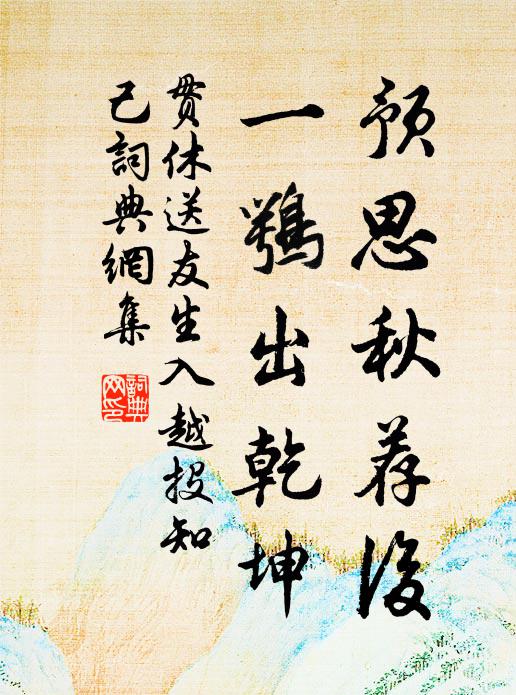 預思秋荐後
一鶚出乾坤
贯休送友生入越投知
己詞典網集
詞典网印